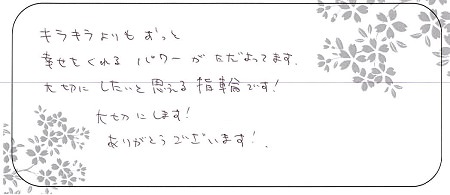 キラキラよりもずっと
幸せをくれるパワーがただよってます.
大切にしたいと思える指輪です!
大切にします!
ありがとうございます!.